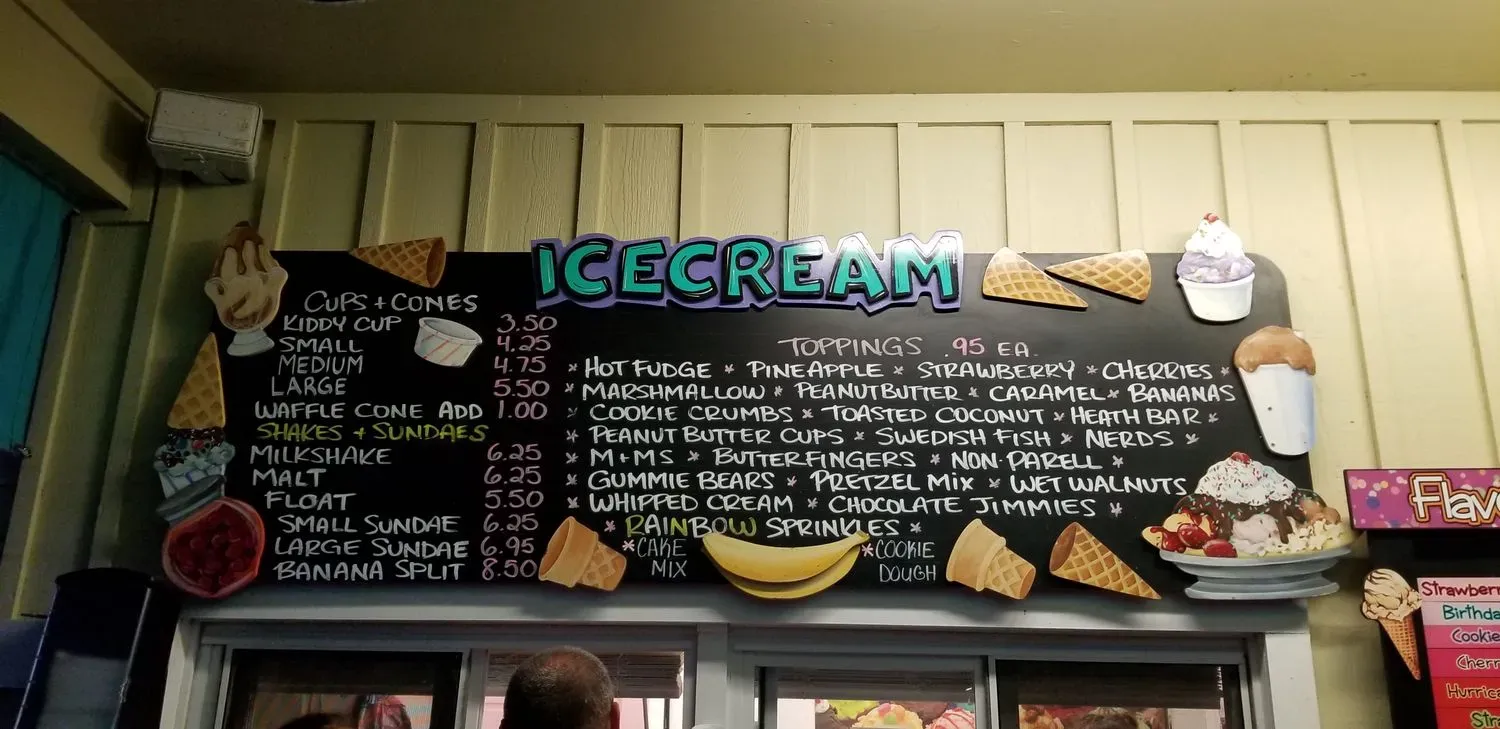 ICECREAM
CUPS + CONES
KIDDY CUP 3.50
SMALL 4.25
MEDIUM 4.75
LARGE 5.50
WAFFLE CONE ADD 1.00
SHAKES + SUNDAES
MILKSHAKE 6.25
MALT 6.25
FLOAT 5.50
SMALL SUNDAE 6.25
LARGE SUNDAE 6.95
BANANA SPLIT 8.50
TOPPINGS .95 EA.
* HOT FUDGE * PINEAPPLE * STRAWBERRY * CHERRIES *
* MARSHMALLOW * PEANUTBUTTER * CARAMEL * BANANAS
* COOKIE CRUMBS * TOASTED COCONUT * HEATH BAR *
* PEANUT BUTTER CUPS * SWEDISH FISH * NERDS *
* M+MS * BUTTERFINGERS * NON-PARELL *
* GUMMIE BEARS * PRETZEL MIX * WET WALNUTS
* WHIPPED CREAM * CHOCOLATE JIMMIES *
* RAINBOW SPRINKLES *
* CAKE MIX
* COOKIE DOUGH
Flav
Strawberr
Birthda
Cookie
Cherr
Hurrica
Str